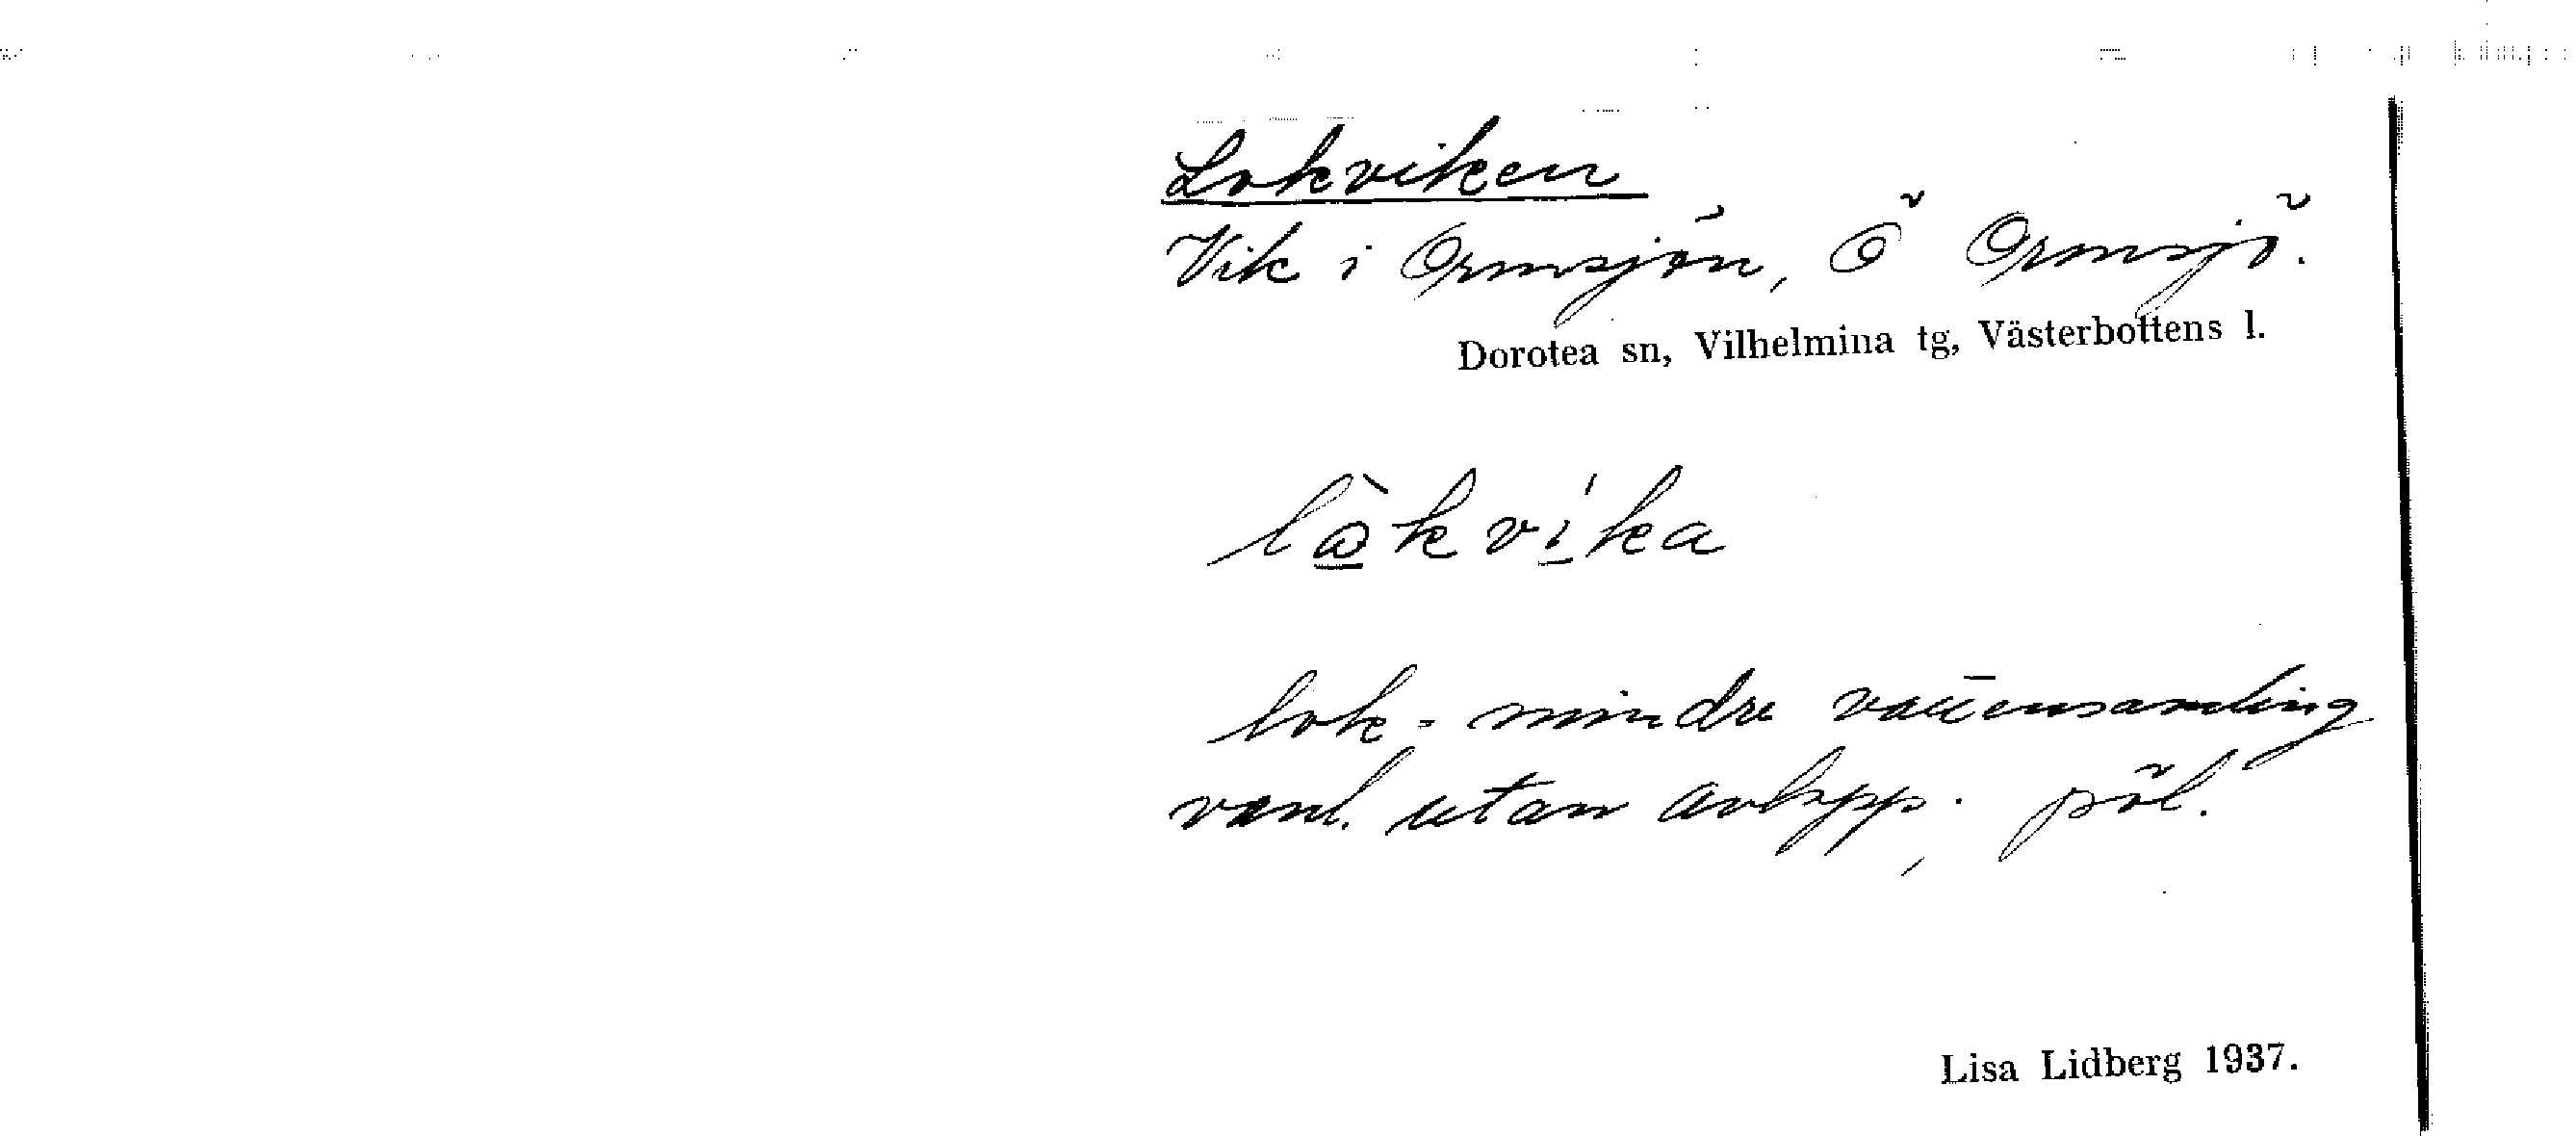 Lokviken
Vik i Ormsjön, Ö Ormsjö.
Dorotea sn, Vilhelmina tg, Västerbottens l.
lòkvíka
lok - mindre vattensamling
vanl. utan avlopp, pöl.
Lisa Lidberg 1937.